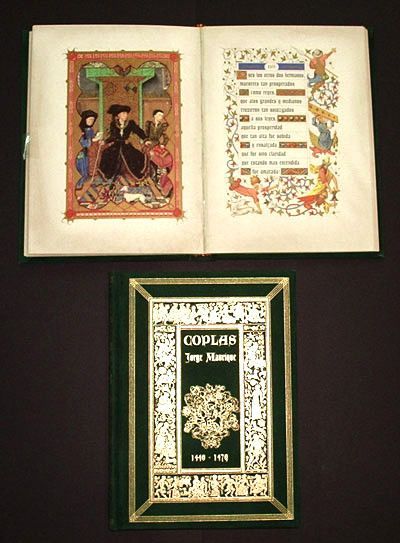 Pues los otros dos hermanos,
maestres tan prosperados
como reyes,
que alos grandes y medianos
truxeron tan sojuzgados
a sus leyes,
aquella prosperidad
que tan alta fue subida
y ensalzada
que fue sino claridad
que estando mas encendida
fue amatada
COPLAS
Jorge Manrique
1440 - 1479